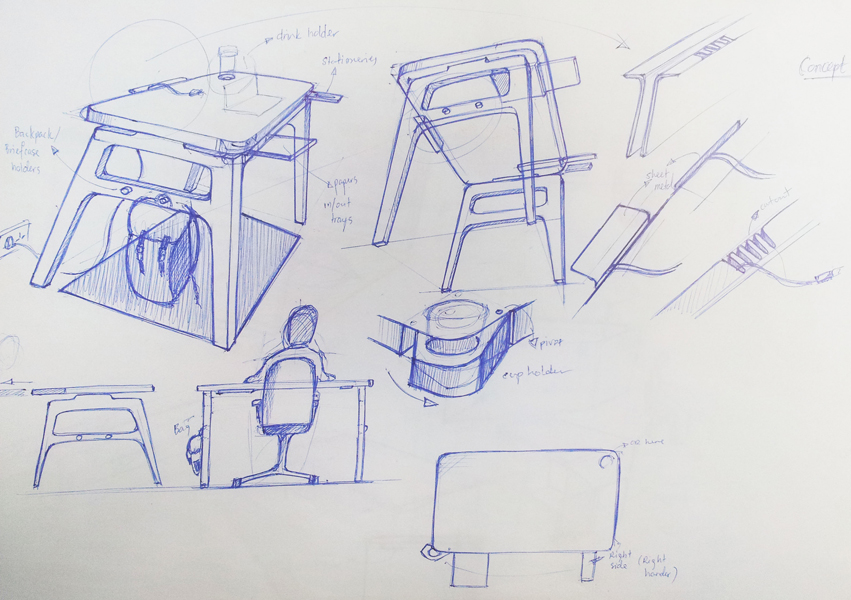 drink holder
stationeries
Concept
Backpack/
Briefcase
holders
papers
in/out
trays
sheet
metal
cutout
pivot
cup holder
Bag
OR here
Right
side
(Right
hander)